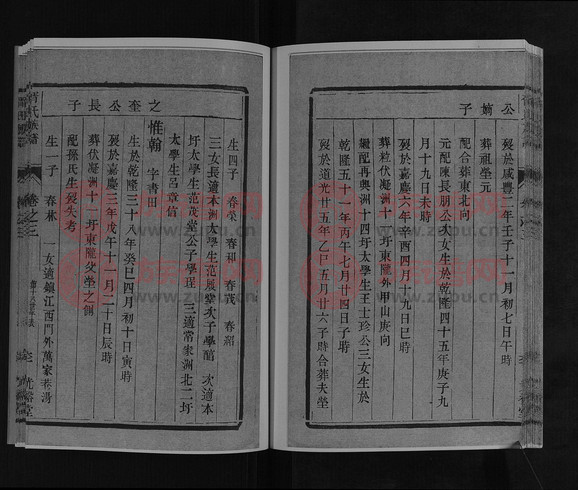 公嫡子
歿於咸豐二年壬子十一月初七日午時
葬祖塋元
配合葬東北向
元配陳長朋公次女生於乾隆四十五年庚子九
月十九日未時
歿於嘉慶六年辛酉四月十九日巳時
葬粒伏凝洲十圩東隴外甲山庚向
繼配再興洲十四圩太學生王士珍公三女生於
乾隆五十一年丙午七月廿四日子時
歿於道光廿五年乙巳五月廿六子時合葬夫塋
生四子 春榮 春祖 春茂 春紹
三女長適本洲太學生范履堂次子學醅 次適本
圩太學生范茂堂公子學珵 三適常家洲北二圩
太學生呂章信
之奎公長子
惟翰 字書田
生於乾隆三十八年癸巳四月初十日寅時
歿於嘉慶三年戊午十一月二十日辰時
葬伏凝洲十一圩東隴父塋之側
配孫氏生歿失考
生一子 春林 一女適鎮江西門外萬家巷湯
氏族譜
卷之三
光裕堂